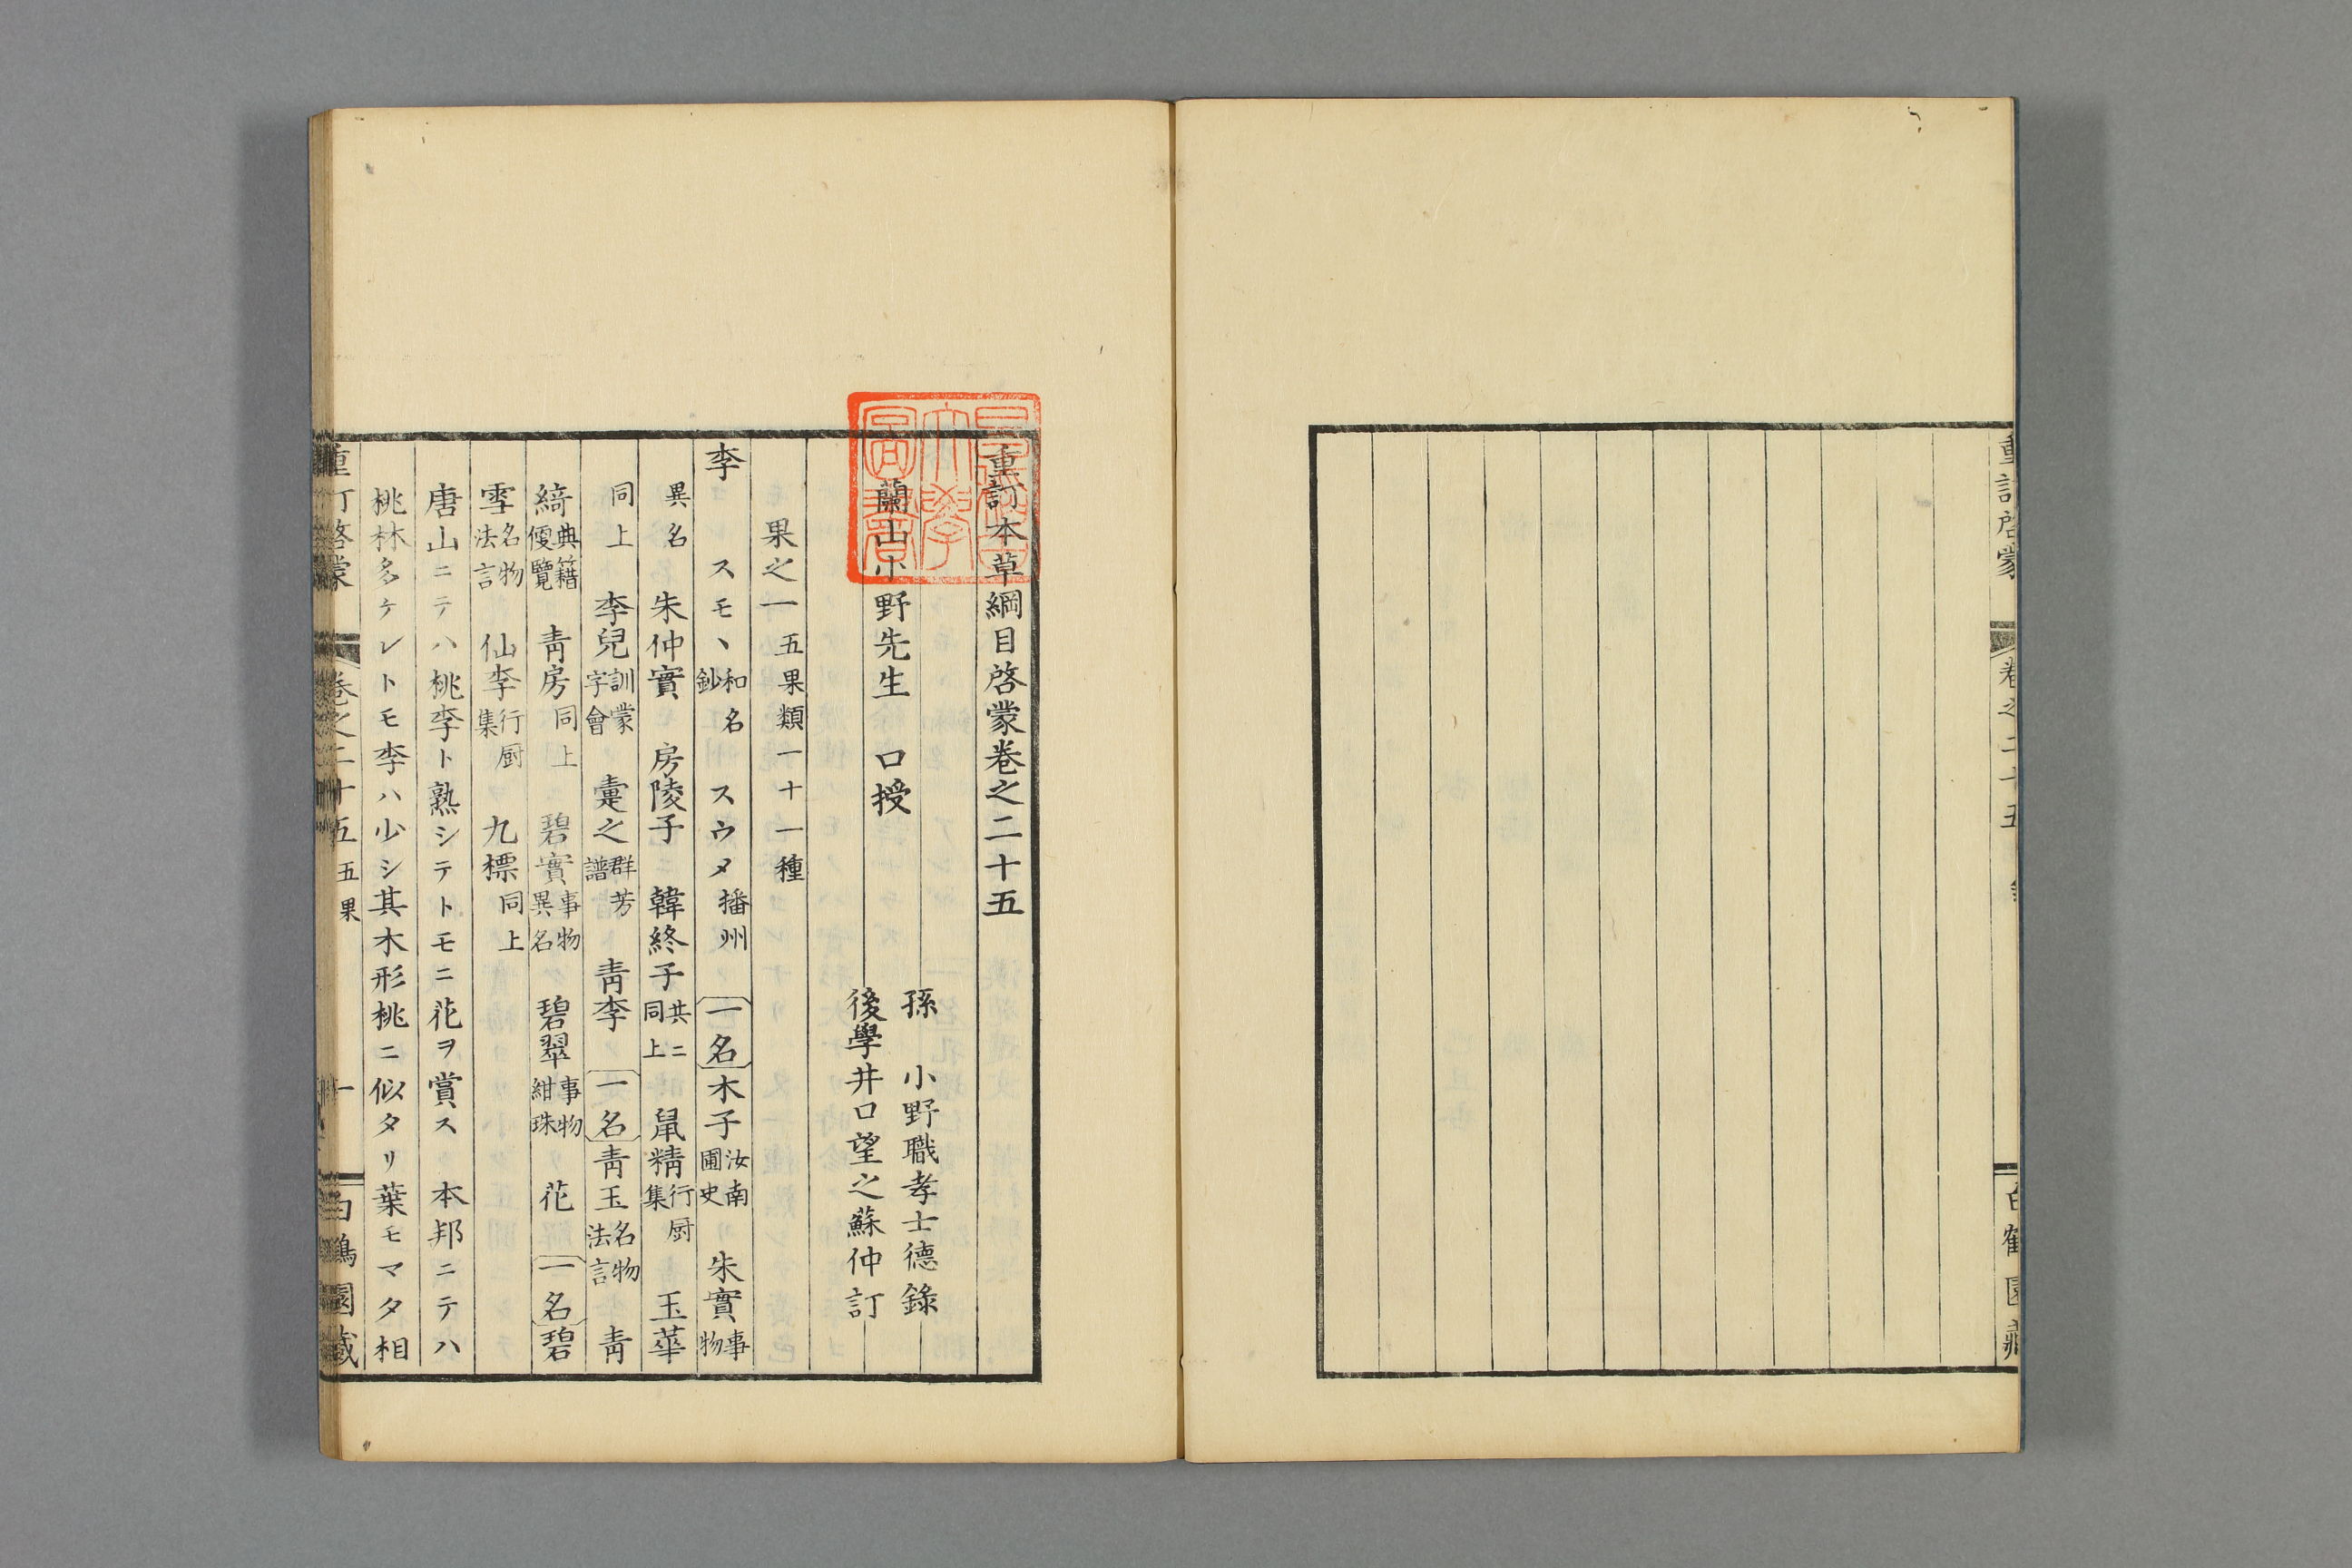 重訂本草綱目啓蒙卷之二十五
蘭山小野先生 口授
孫 小野職孝士德錄
後學井口望之蘇仲訂
果之一 五果類一十一種
李 スモヽ和名鈔 スウメ播州 一名木子汝南圃史 朱實事物
異名 朱仲實 房陵子 韓終子共ニ同上 鼠精行厨集 玉華
同上 李兒訓蒙字會 㚖之群芳譜 靑李 一名靑玉名物法言 靑
綺典籍便覽 靑房同上 碧實事物異名 碧翠事物紺珠 花 一名碧
雪名物法言 仙李行厨集 九標同上
唐山ニテハ桃李ト熟シテトモニ花ヲ賞ス 本邦ニテハ
桃林多ケレトモ李ハ少シ其木形桃ニ似タリ葉モマタ相
重訂啓蒙 卷之二十五 五果 一 白鶴園藏